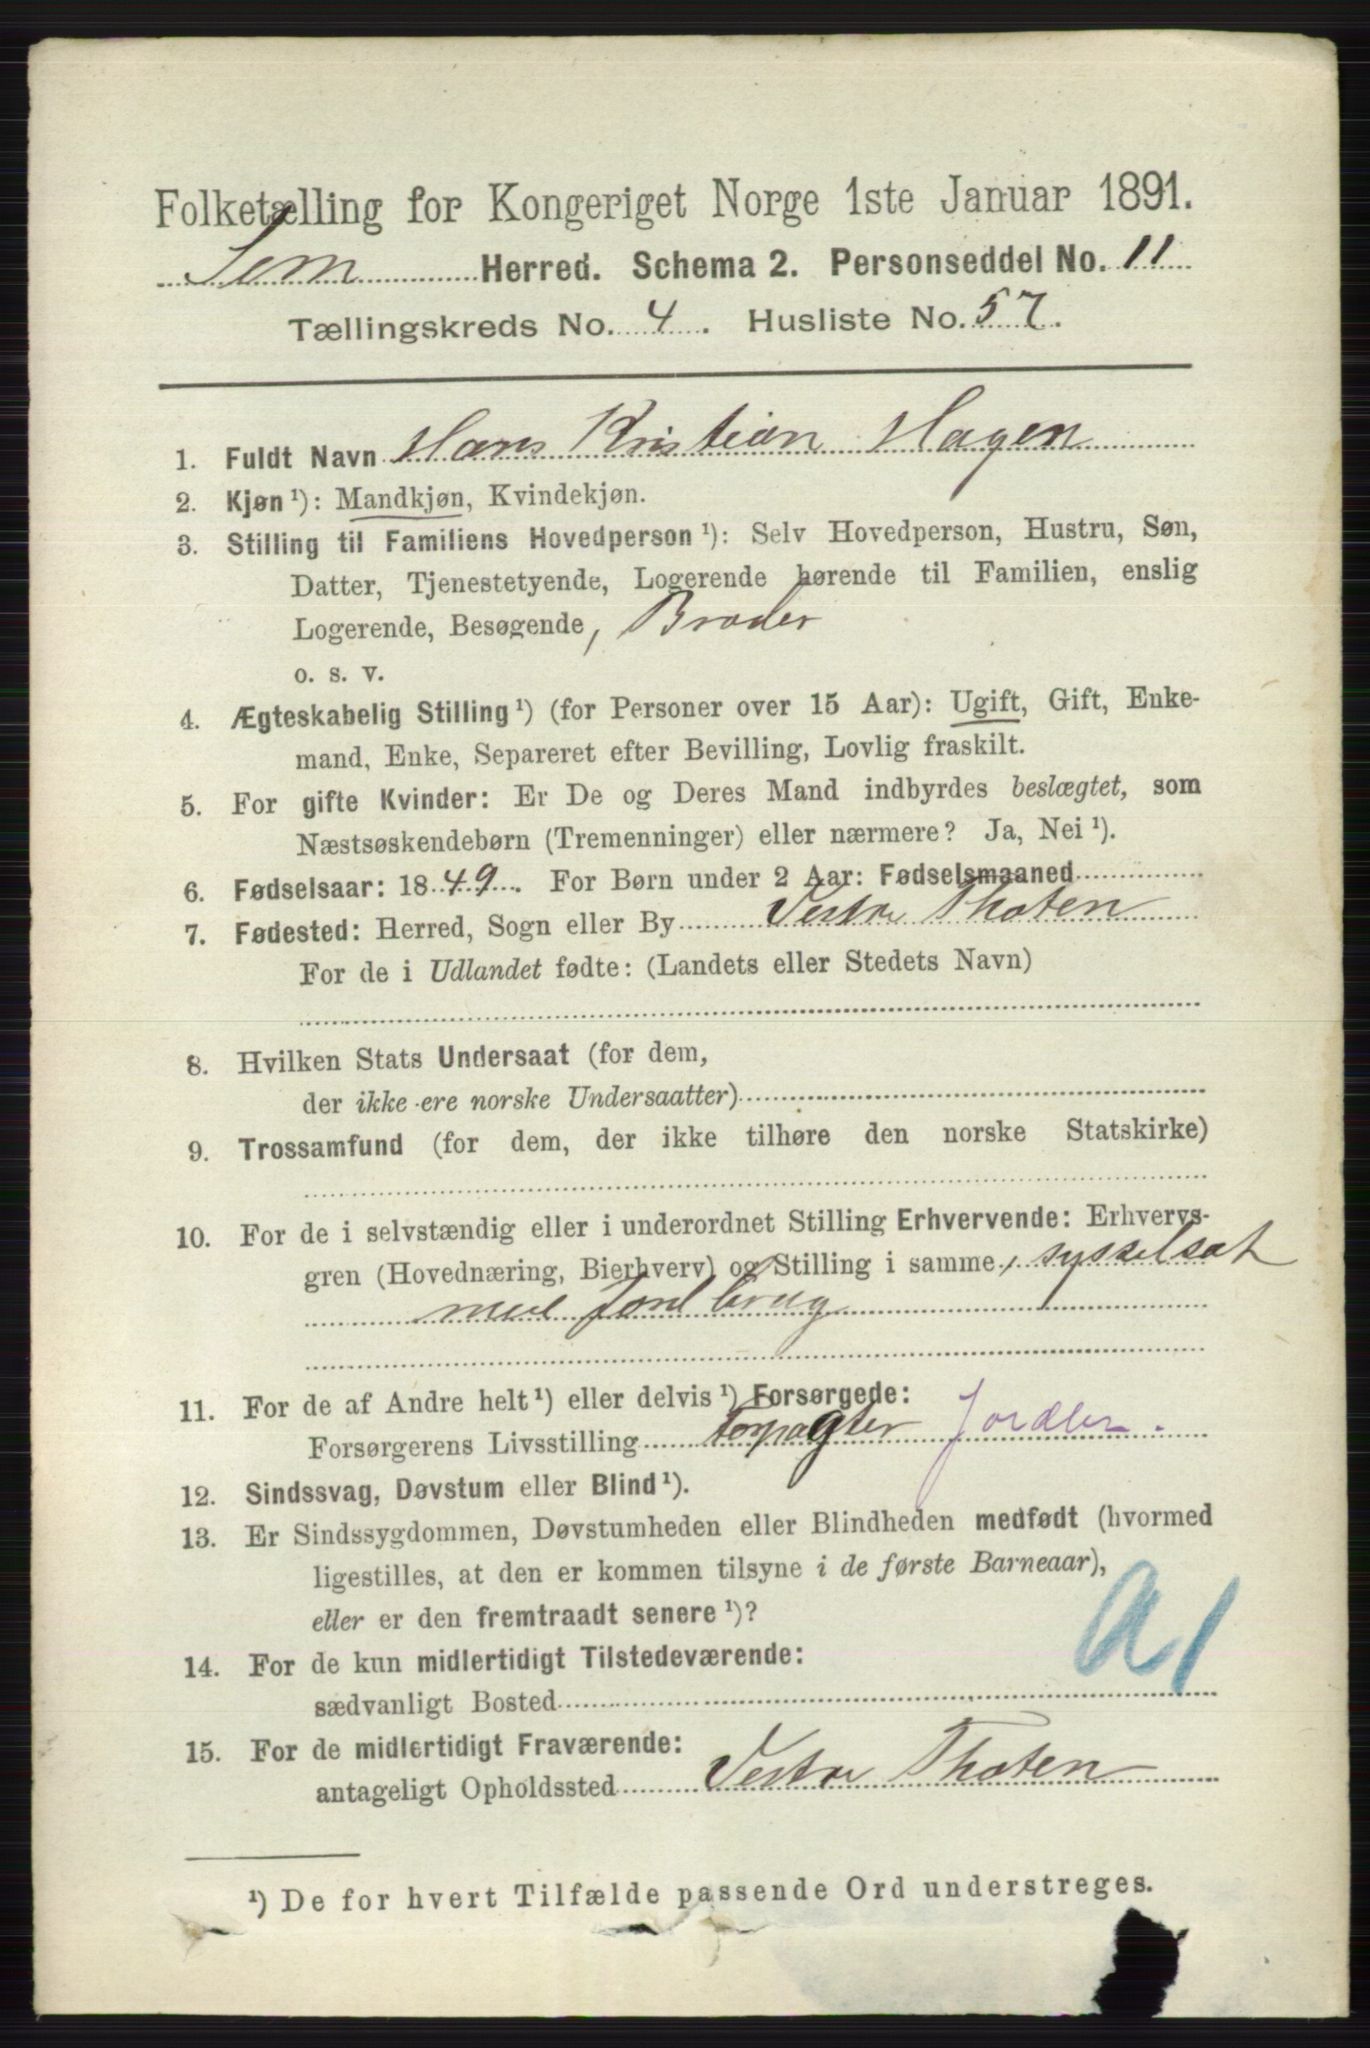 Folketælling for Kongeriget Norge 1ste Januar 1891.
Sem Herred. Schema 2. Personseddel No. 11
Tællingskreds No. 4. Husliste No. 57.
1. Fuldt Navn Hans Kristian Hagen
2. Kjøn ¹): Mandkjøn, Kvindekjøn.
3. Stilling til Familiens Hovedperson ¹): Selv Hovedperson, Hustru, Søn,
Datter, Tjenestetyende, Logerende hørende til Familien, enslig
Logerende, Besøgende, Broder
o. s. v.
4. Ægteskabelig Stilling ¹) (for Personer over 15 Aar): Ugift, Gift, Enke-
mand, Enke, Separeret efter Bevilling, Lovlig fraskilt.
5. For gifte Kvinder: Er De og Deres Mand indbyrdes beslægtet, som
Næstsøskendebørn (Tremenninger) eller nærmere? Ja, Nei ¹).
6. Fødselsaar: 1849. For Børn under 2 Aar: Fødselsmaaned
7. Fødested: Herred, Sogn eller By Vestre Thoten
For de i Udlandet fødte: (Landets eller Stedets Navn)
8. Hvilken Stats Undersaat (for dem,
der ikke ere norske Undersaatter)
9. Trossamfund (for dem, der ikke tilhøre den norske Statskirke)
10. For de i selvstændig eller i underordnet Stilling Erhvervende: Erhvervs-
gren (Hovednæring, Bierhverv) og Stilling i samme, sysselsat
med Jordbrug
11. For de af Andre helt ¹) eller delvis ¹) Forsørgede:
Forsørgerens Livsstilling Forpagter Jordbr.
12. Sindssvag, Døvstum eller Blind ¹).
13. Er Sindssygdommen, Døvstumheden eller Blindheden medfødt (hvormed
ligestilles, at den er kommen tilsyne i de første Barneaar),
eller er den fremtraadt senere ¹)?
a1
14. For de kun midlertidigt Tilstedeværende:
sædvanligt Bosted
15. For de midlertidigt Fraværende:
antageligt Opholdssted Vestre Thoten
¹) De for hvert Tilfælde passende Ord understreges.